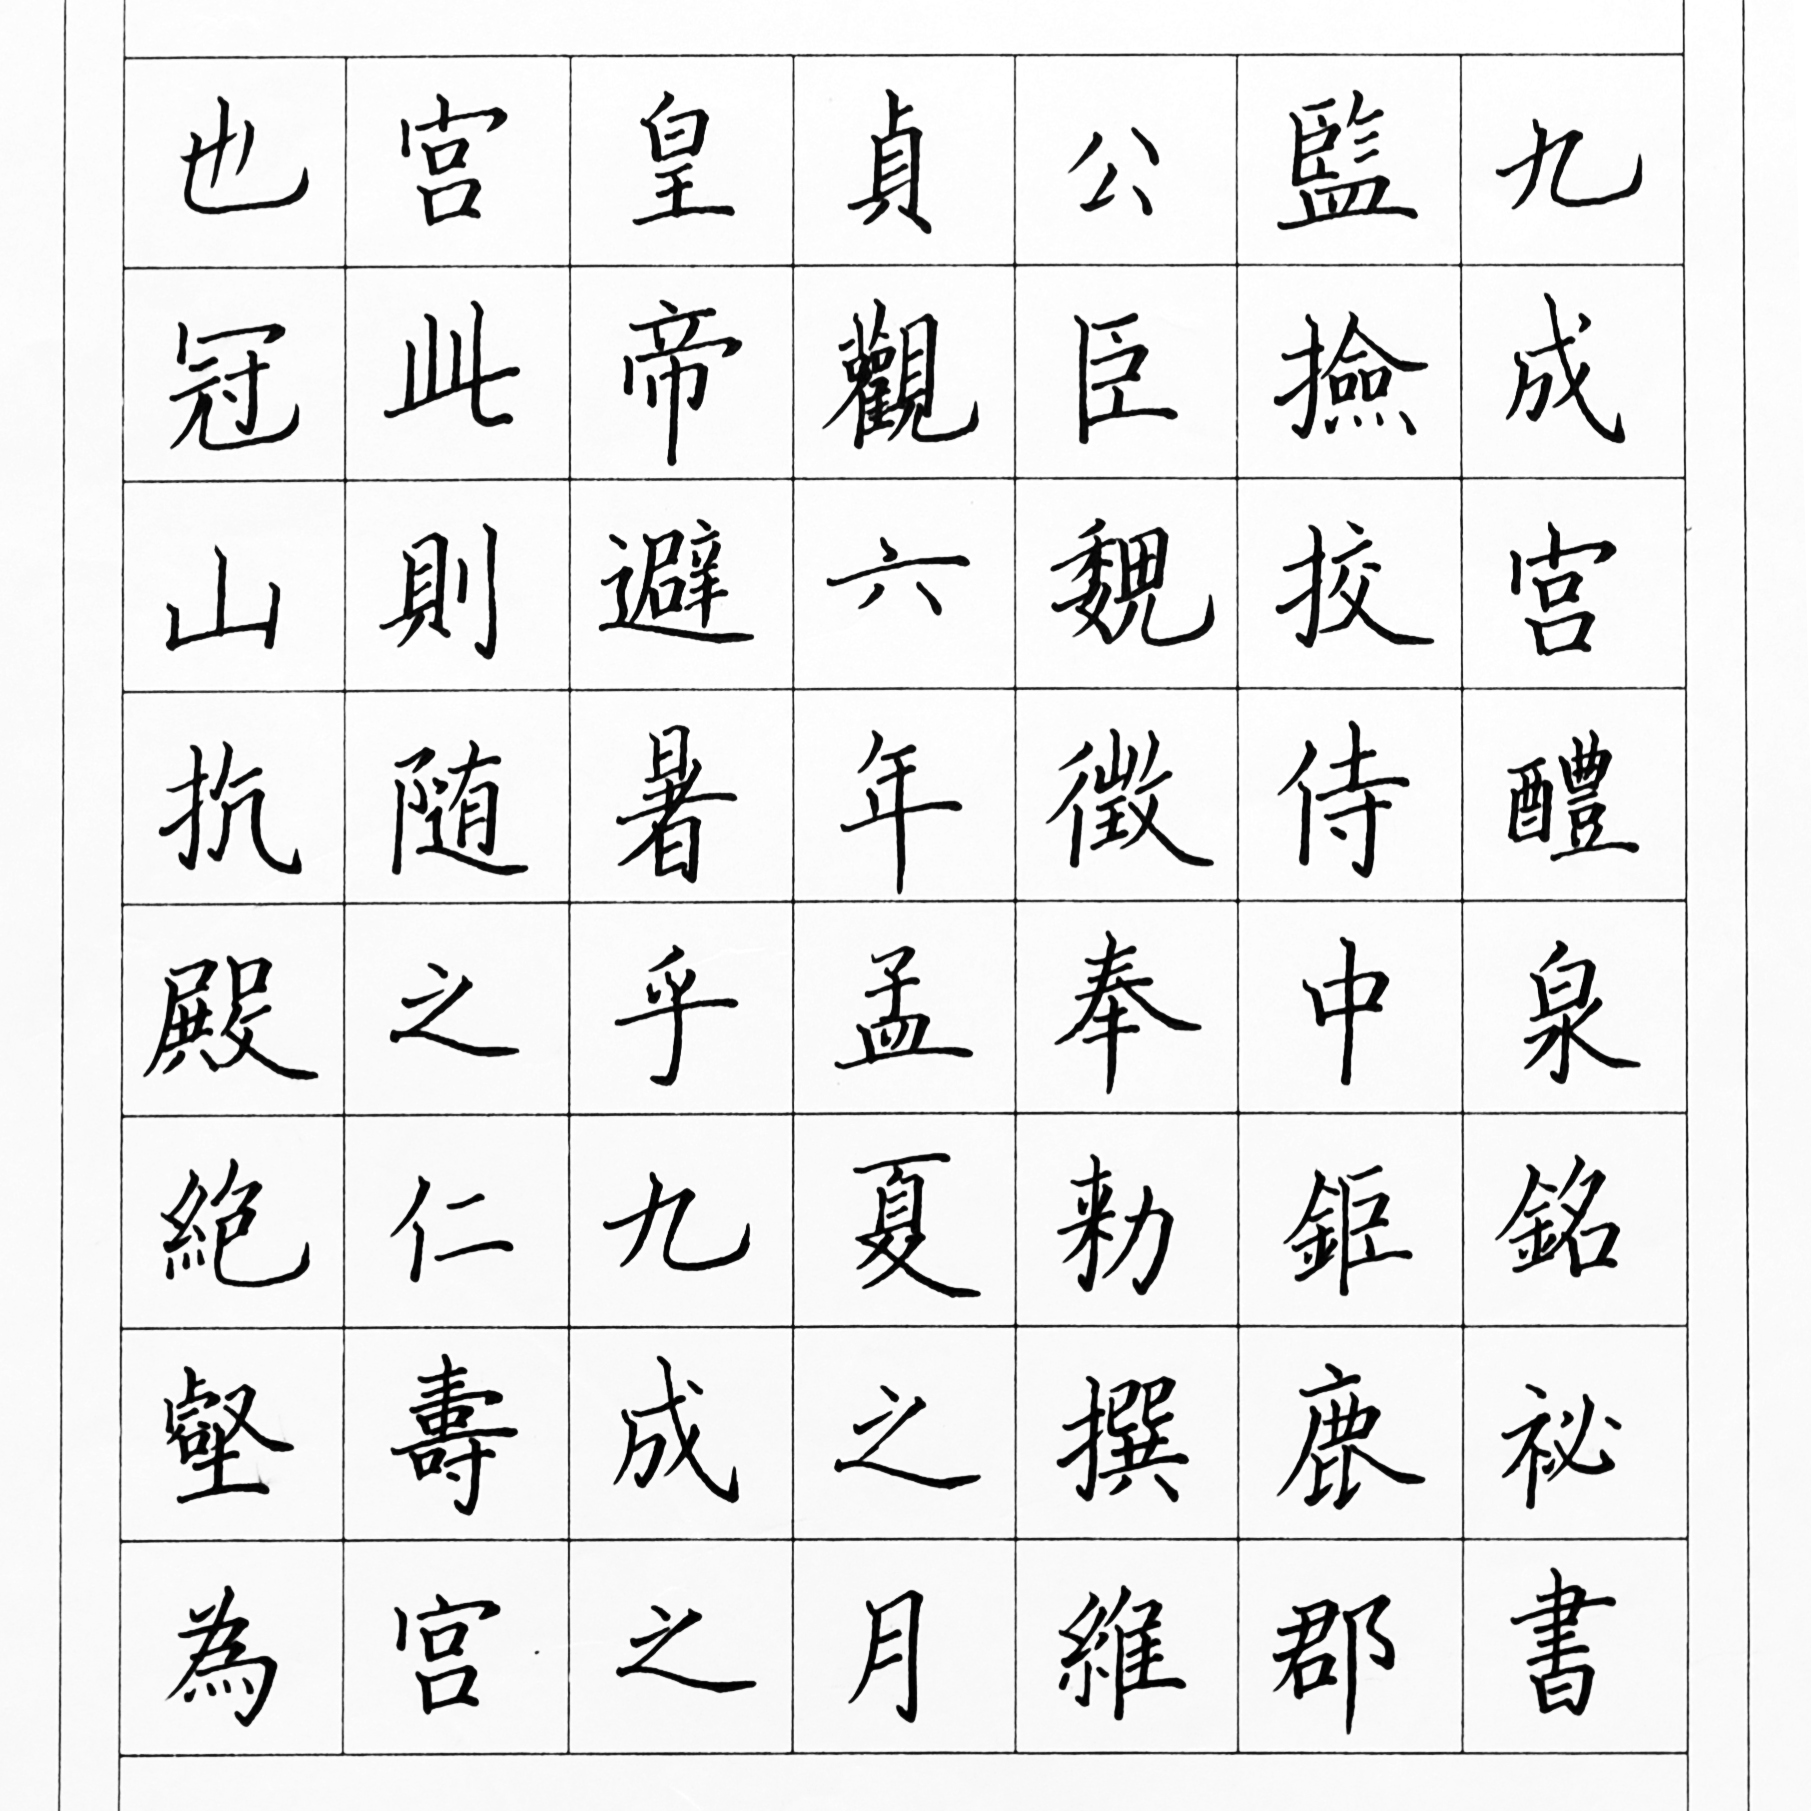 九成宮醴泉銘祕書
監撿挍侍中鉅鹿郡
公臣魏徵奉勑撰維
貞觀六年孟夏之月
皇帝避暑乎九成之
宮此則随之仁壽宮
也冠山抗殿絶壑為